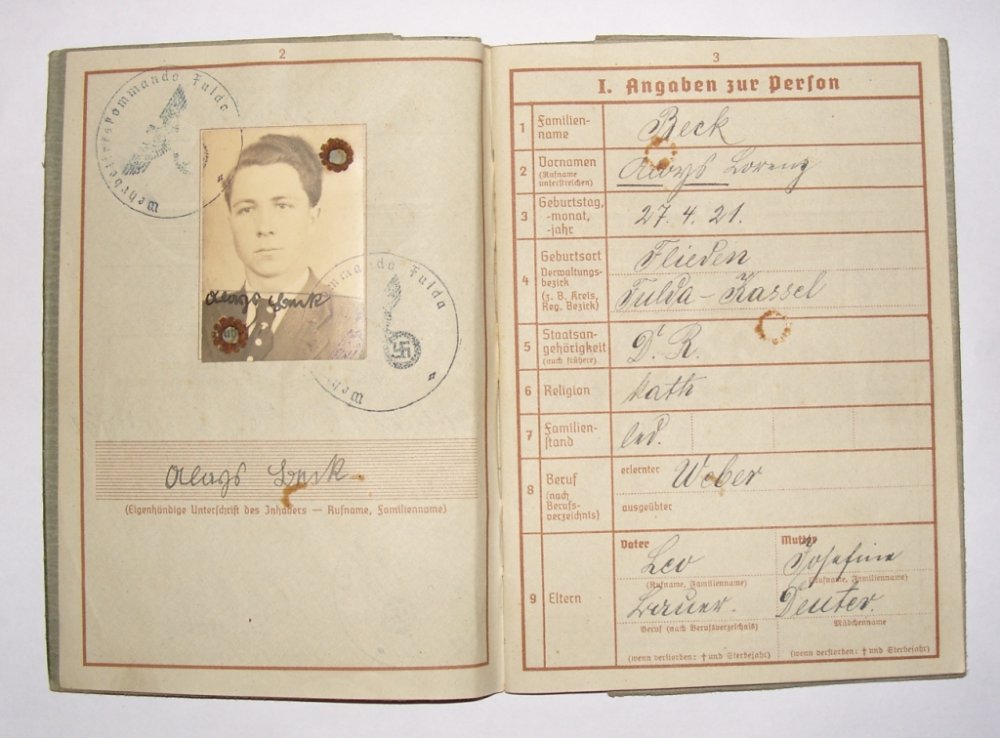 2
Wehrbezirkskommando Fulda
Aloys Beck
Aloys Beck
(Eigenhändige Unterschrift des Inhabers — Rufname, Familienname)
3
I. Angaben zur Person
1 Familienname Beck
2 Vornamen (Rufname unterstreichen) Aloys Lorenz
3 Geburtstag, -monat, -jahr 27. 4. 21.
4 Geburtsort Flieden
Verwaltungsbezirk (z. B. Kreis, Reg. Bezirk) Fulda - Kassel
5 Staatsangehörigkeit (auch frühere) D. R.
6 Religion kath
7 Familienstand led.
8 Beruf (nach Berufsverzeichnis) erlernter Weber
ausgeübter
9 Eltern
Vater Mutter
Leo Josefine
(Rufname, Familienname) (Rufname, Familienname)
Bauer. Deuter.
Beruf (nach Berufsverzeichnis) Mädchenname
(wenn verstorben: † und Sterbejahr) (wenn verstorben: † und Sterbejahr)